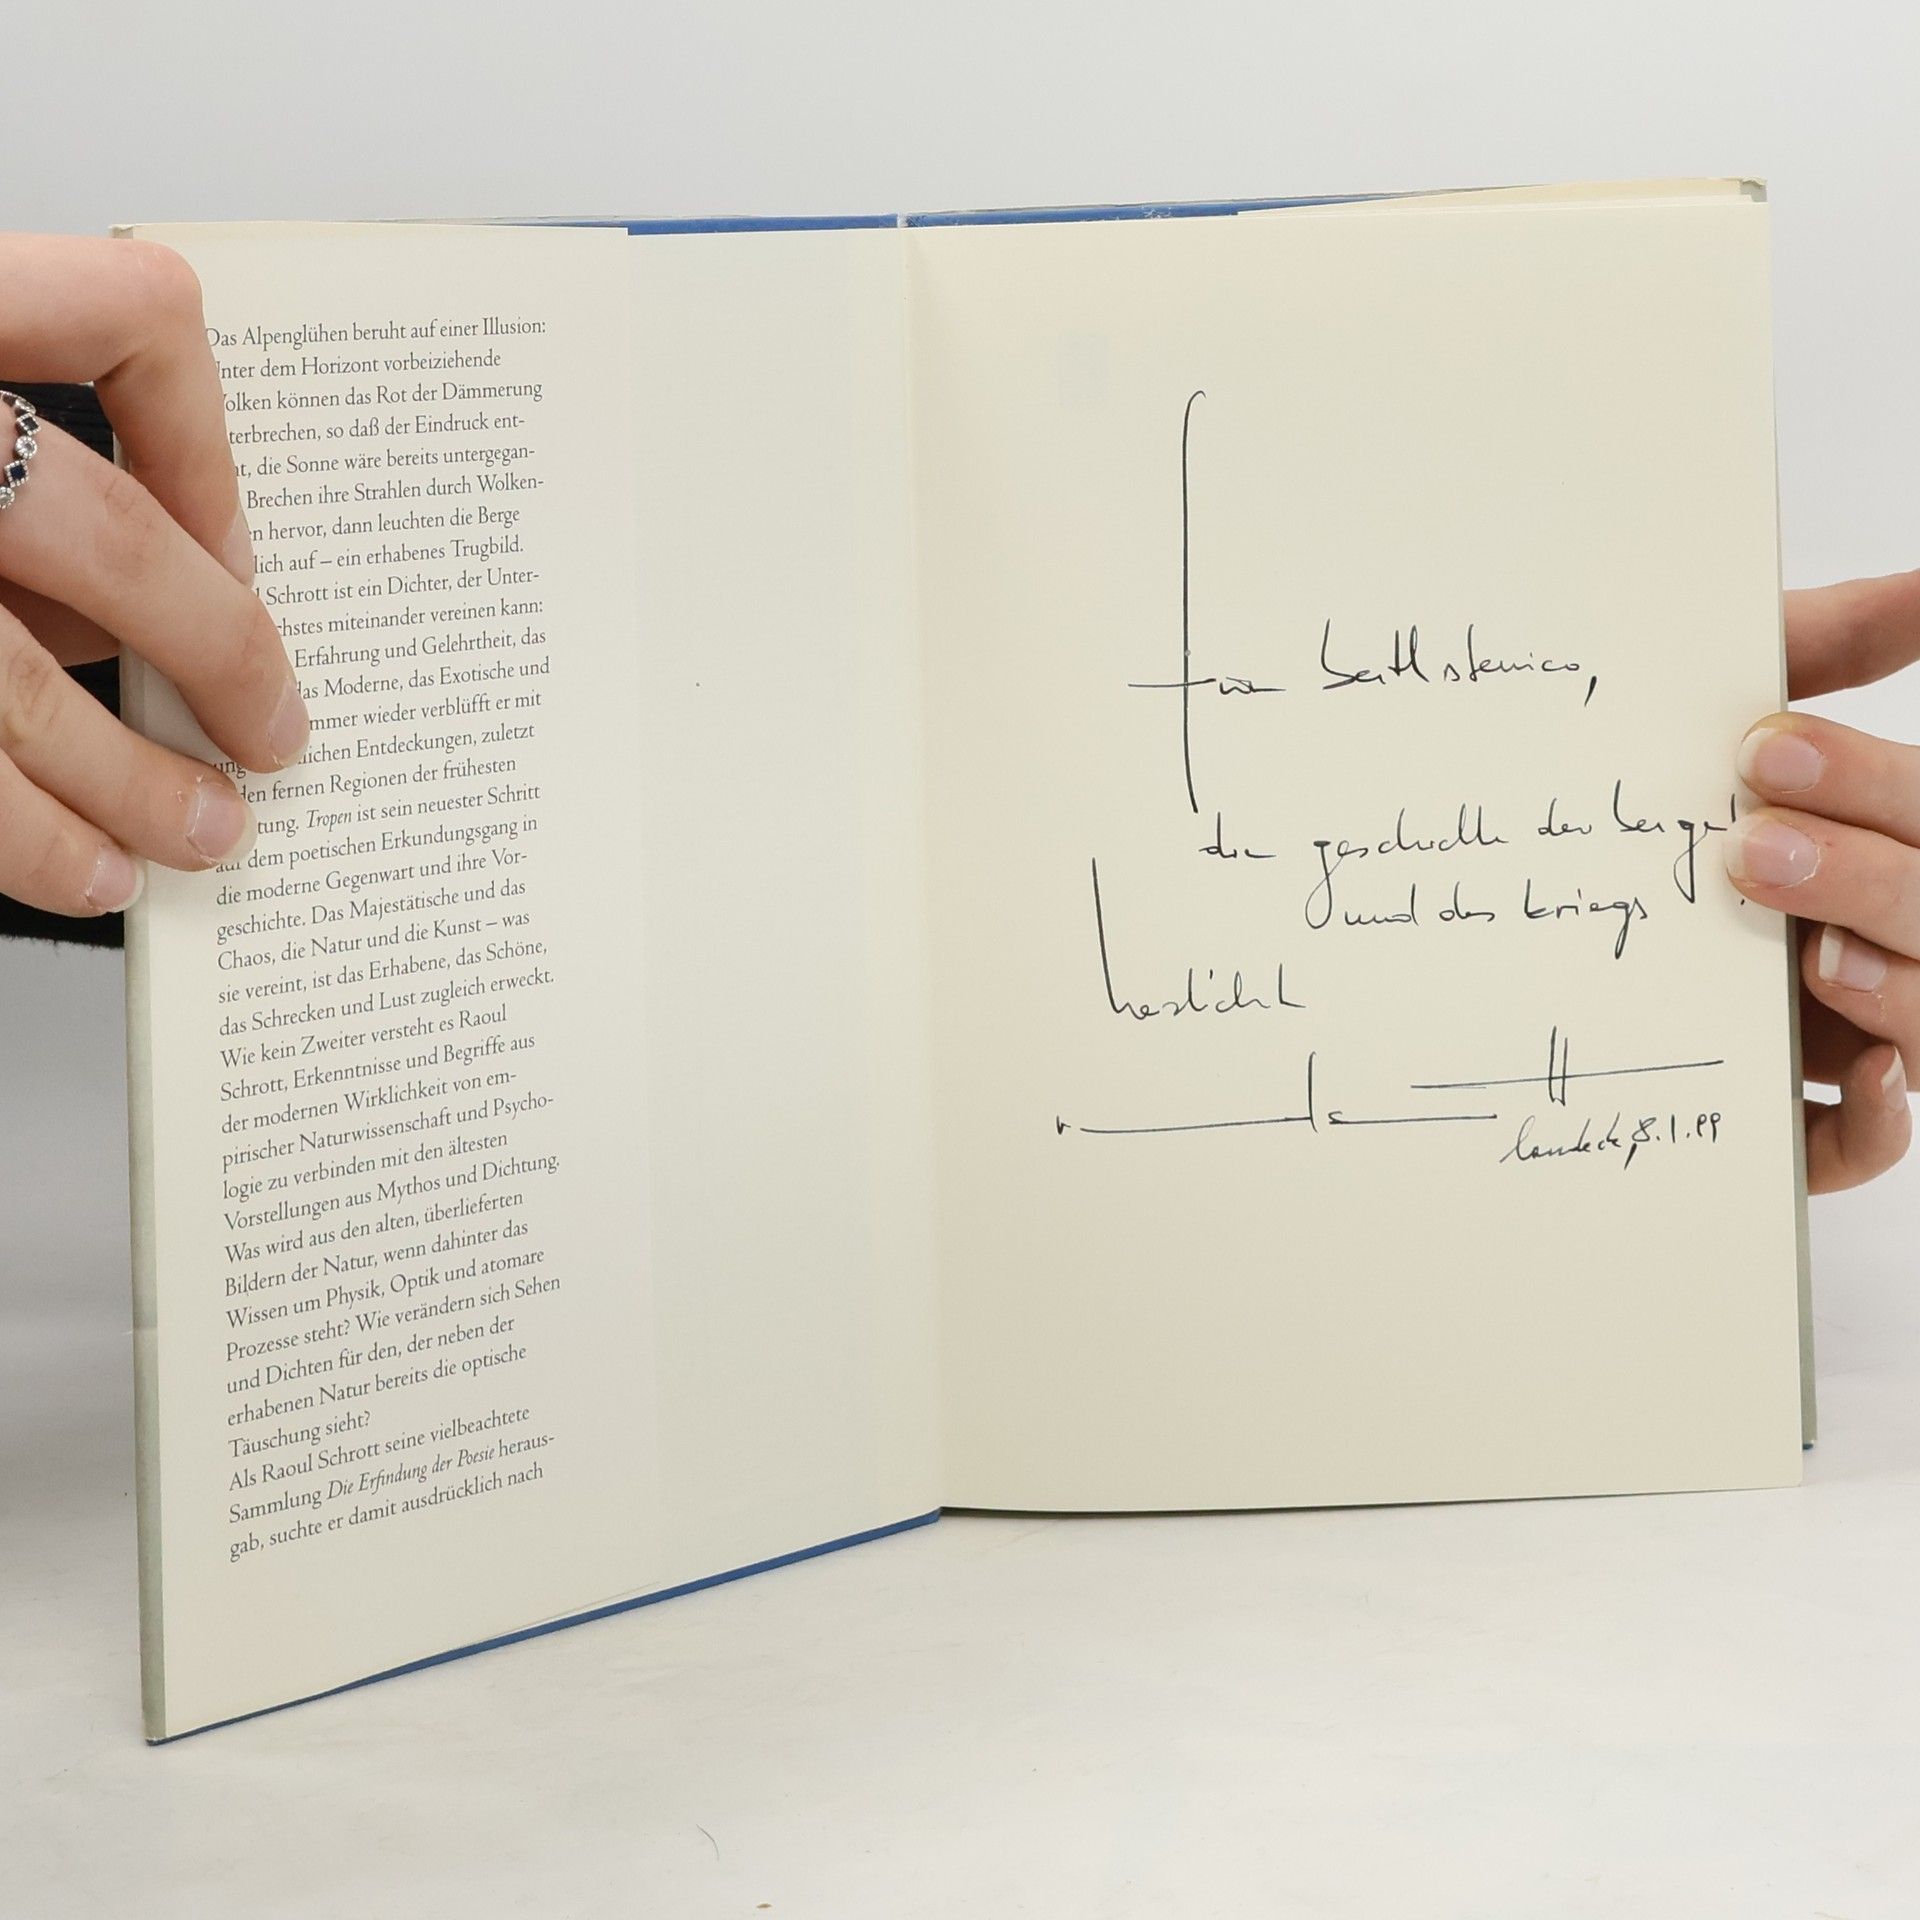 Das Alpenglühen beruht auf einer Illusion:
nter dem Horizont vorbeiziehende
olken können das Rot der Dämmerung
terbrechen, so daß der Eindruck ent-
ht, die Sonne wäre bereits untergegan-
Brechen ihre Strahlen durch Wolken-
n hervor, dann leuchten die Berge
lich auf – ein erhabenes Trugbild.
l Schrott ist ein Dichter, der Unter-
chstes miteinander vereinen kann:
Erfahrung und Gelehrtheit, das
das Moderne, das Exotische und
mmer wieder verblüfft er mit
ung lichen Entdeckungen, zuletzt
den fernen Regionen der frühesten
tung. Tropen ist sein neuester Schritt
auf dem poetischen Erkundungsgang in
die moderne Gegenwart und ihre Vor-
geschichte. Das Majestätische und das
Chaos, die Natur und die Kunst – was
sie vereint, ist das Erhabene, das Schöne,
das Schrecken und Lust zugleich erweckt.
Wie kein Zweiter versteht es Raoul
Schrott, Erkenntnisse und Begriffe aus
der modernen Wirklichkeit von em-
pirischer Naturwissenschaft und Psycho-
logie zu verbinden mit den ältesten
Vorstellungen aus Mythos und Dichtung.
Was wird aus den alten, überlieferten
Bildern der Natur, wenn dahinter das
Wissen um Physik, Optik und atomare
Prozesse steht? Wie verändern sich Sehen
und Dichten für den, der neben der
erhabenen Natur bereits die optische
Täuschung sieht?
Als Raoul Schrott seine vielbeachtete
Sammlung Die Erfindung der Poesie heraus-
gab, suchte er damit ausdrücklich nach
für
die geschichte der berge
und des kriegs
herzlichst
landeck, 8.1.99